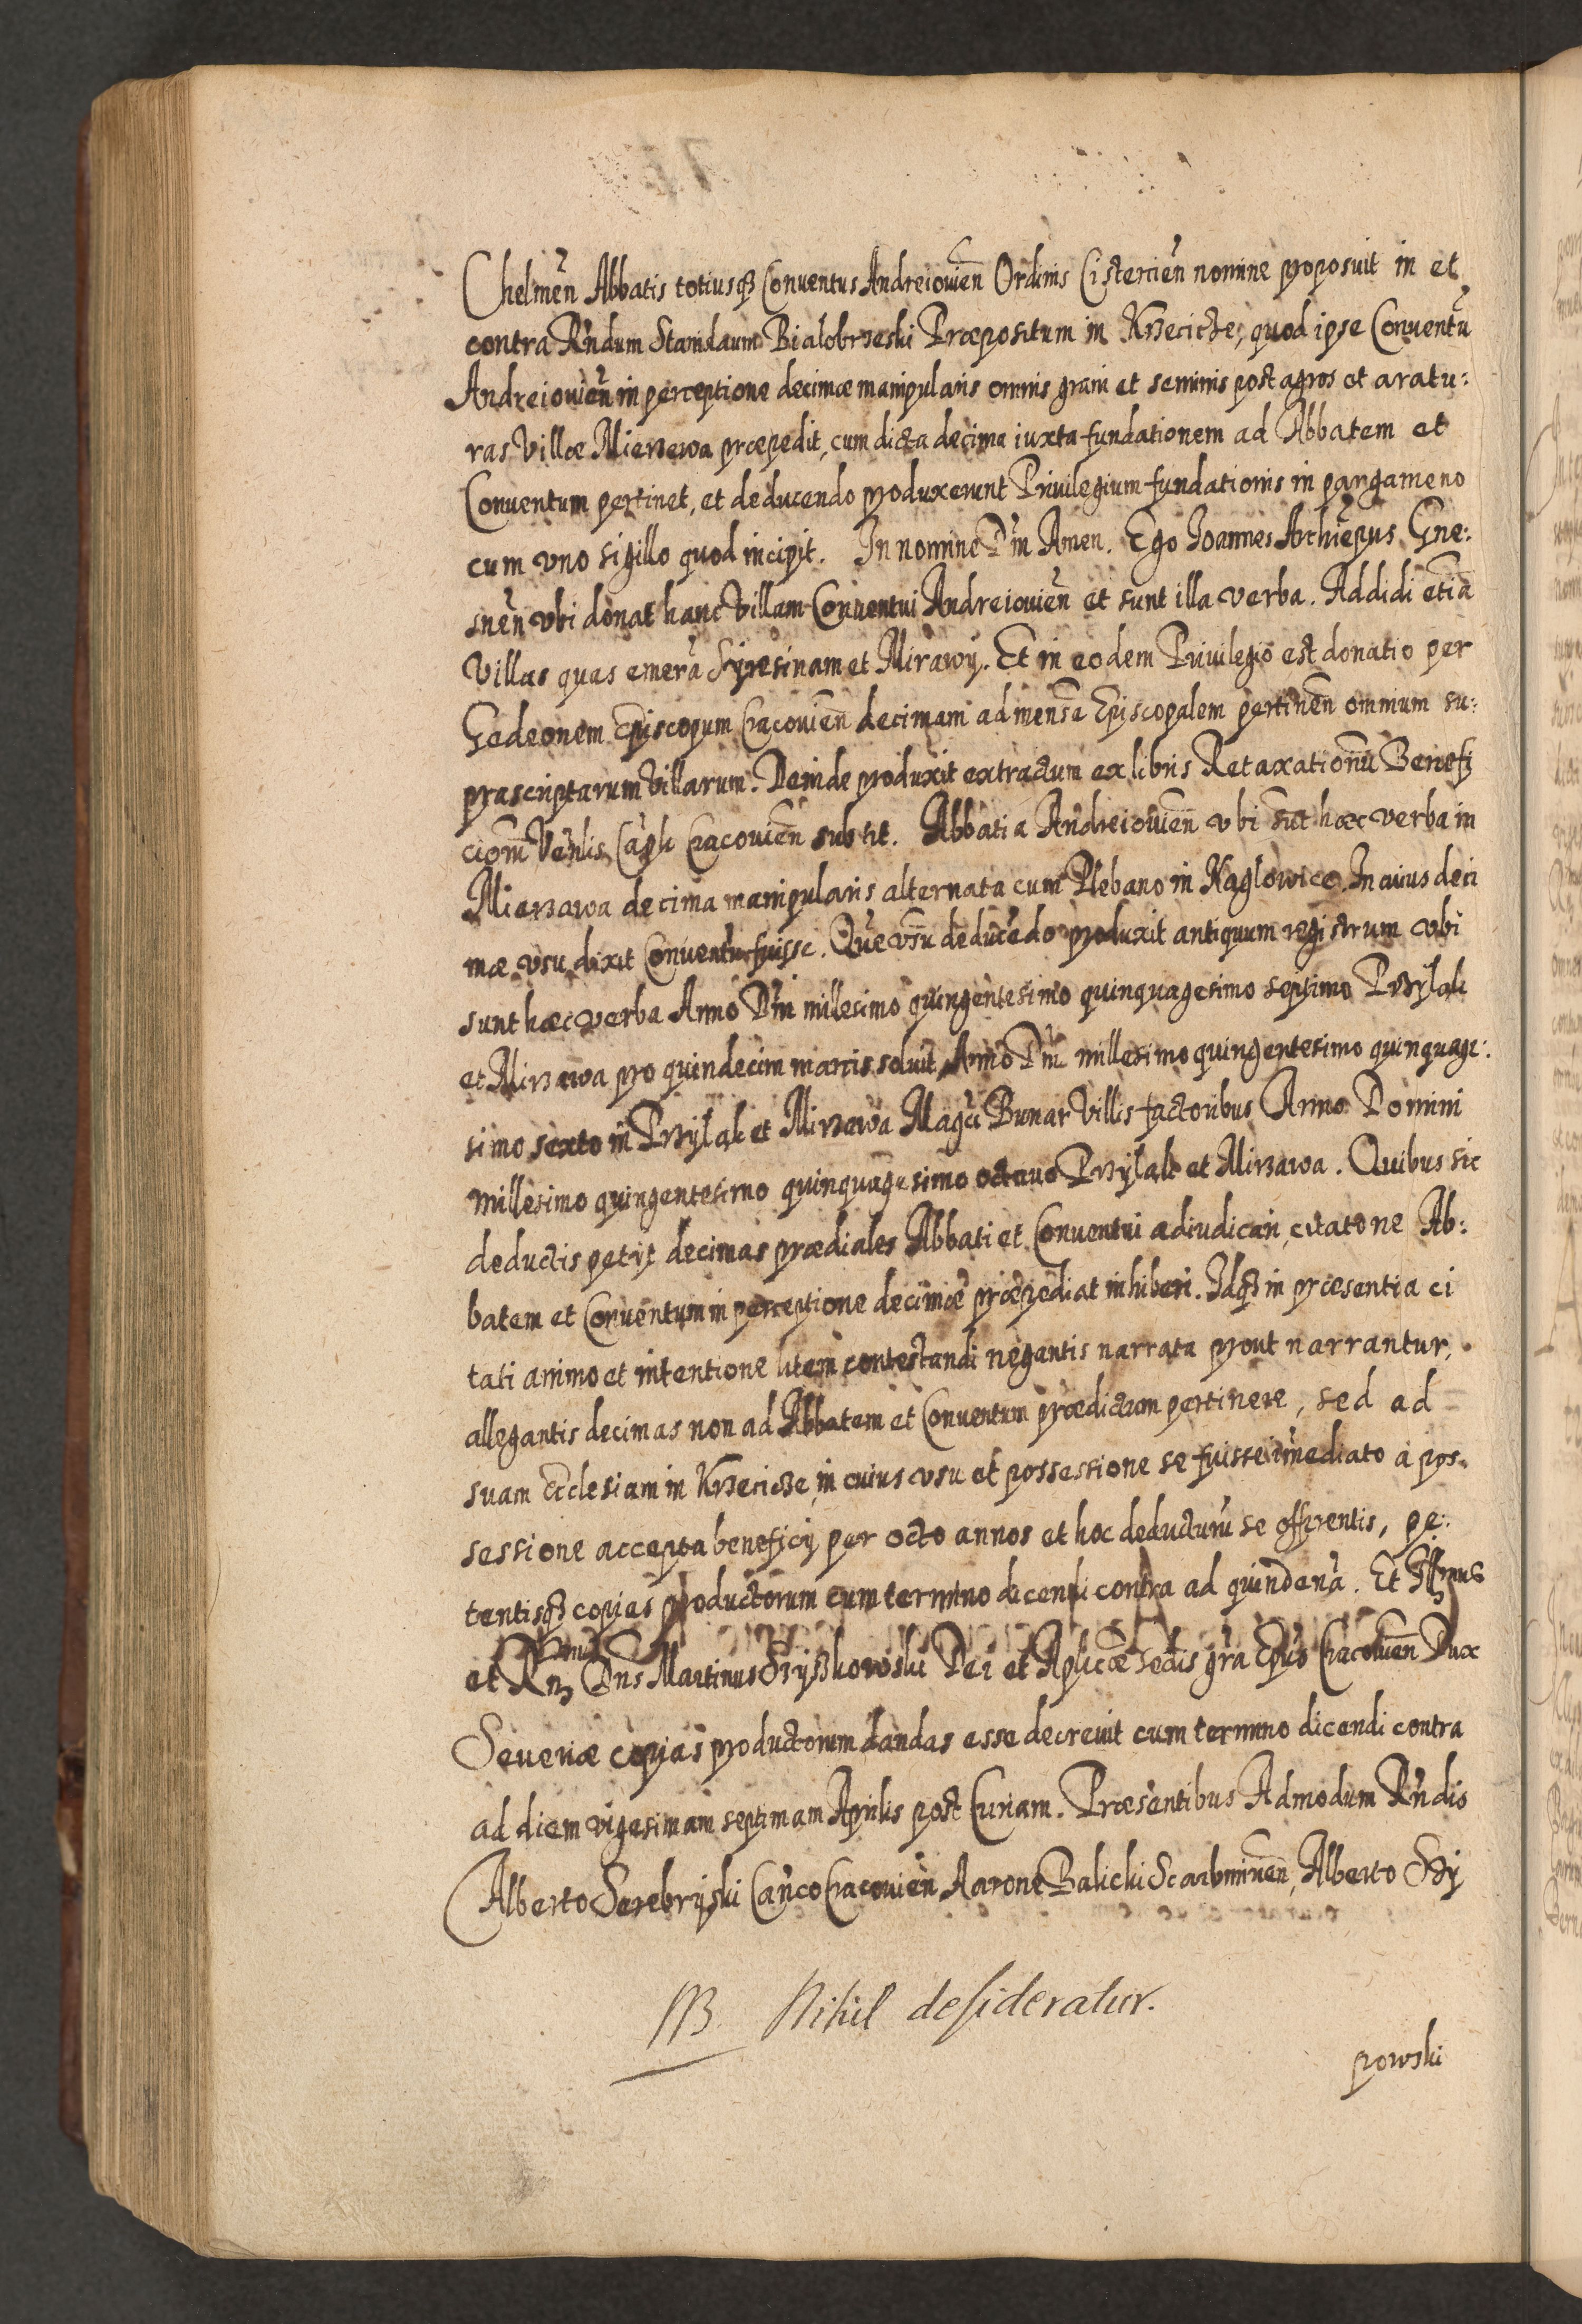 Chelmen̄ Abbatis totiusq3 Conuentus Andreiouien̄ Ordinis Cistercien̄ nomine proposuit in et
contra Rn̄dum Stanislaum Bialobrzeski Præpositum in Krzecicze, quod ipse Conuentū
Andreiouien̄ in perceptione decimæ manipularis omnis grani et seminis post agros et aratu:
ras Villæ Mierzawa præpedit, cum dicta decima iuxta fundationem ad Abbatem et
Conuentum pertinet, et deducendo produxerunt Priuilegium fundationis in pargameno
cum vno sigillo quod incipit. In nomine Dn̄i Amen. Ego Joannes Archiep̄us Gne:
snen̄ vbi donat hanc Villam Conuentui Andreiouien̄ et sunt illa verba. Addidi etiā
Villas quas emerā et Mirawÿ. Et in eodem Priuilegio est donatio per
Gedeonem Episcopum Cracouien̄ decimam ad mensā Episcopalem pertinen̄ omnium su:
prascriptarum Villarum. Deinde produxit extractum ex libris Retaxationū Benefi
ciorū Ven̄lis Cap̄li Cracouien̄ sub tit. Abbatia Andreiouien̄ vbi sūt hæc verba in
Mierzawa decima manipularis alternata cum Plebano in Naglowice. In cuius deci
mæ vsu dixit Conuentū fuisse. Que vsū deducēdo produxit antiquum registrum vbi
sunt hæc verba Anno Dn̄i millesimo quingentesimo quinquagesimo septimo Przÿlak
et Mirzawa pro quindecim marcis soluit, Anno Dn̄i millesimo quingentesimo quinquage:
simo sexto in Przÿlak et Mirzawa Bunar Villis factoribus Anno Domini
millesimo quingentesimo quinquagesimo octauo Przÿlak et Mirzawa. Quibus sic
deductis petÿt decimas prædiales Abbati et Conuentui adiudicari, citato ne Ab:
batem et Conuentum in perceptione decimæ præpediat inhiberi. Idq3 in præsentia ci
tati animo et intentione litem contestandi negantis narrata prout narrantur,
allegantis decimas non ad Abbatem et Conuentum prædictum pertinere, sed ad
suam Ecclesiam in Krzecicze, in cuius vsu et possessione se fuisse im̄ediato a pos
sessione accepta beneficÿ per octo annos et hoc deducturū se offerentis, pe:
tentisq3 copias productorum cum termino dicendi contra ad quindenā. Et Ill̄rmus
et Rn̄mus Dn̄s Martinus Szÿszkowski Dei et Ap̄licæ Sedis grā Ep̄us Cracouien̄ Dux
Seueriæ copias productorum dandas esse decreuit cum termino dicendi contra
ad diem vigesimam septimam Aprilis post Curiam. Præsentibus Admodum Rn̄dis
Alberto Serebrÿski Can̄co Cracouien̄ Aarone Balicki Scarbimiren̄, Alberto Szÿ
NB. Nihil desideratur.
powski